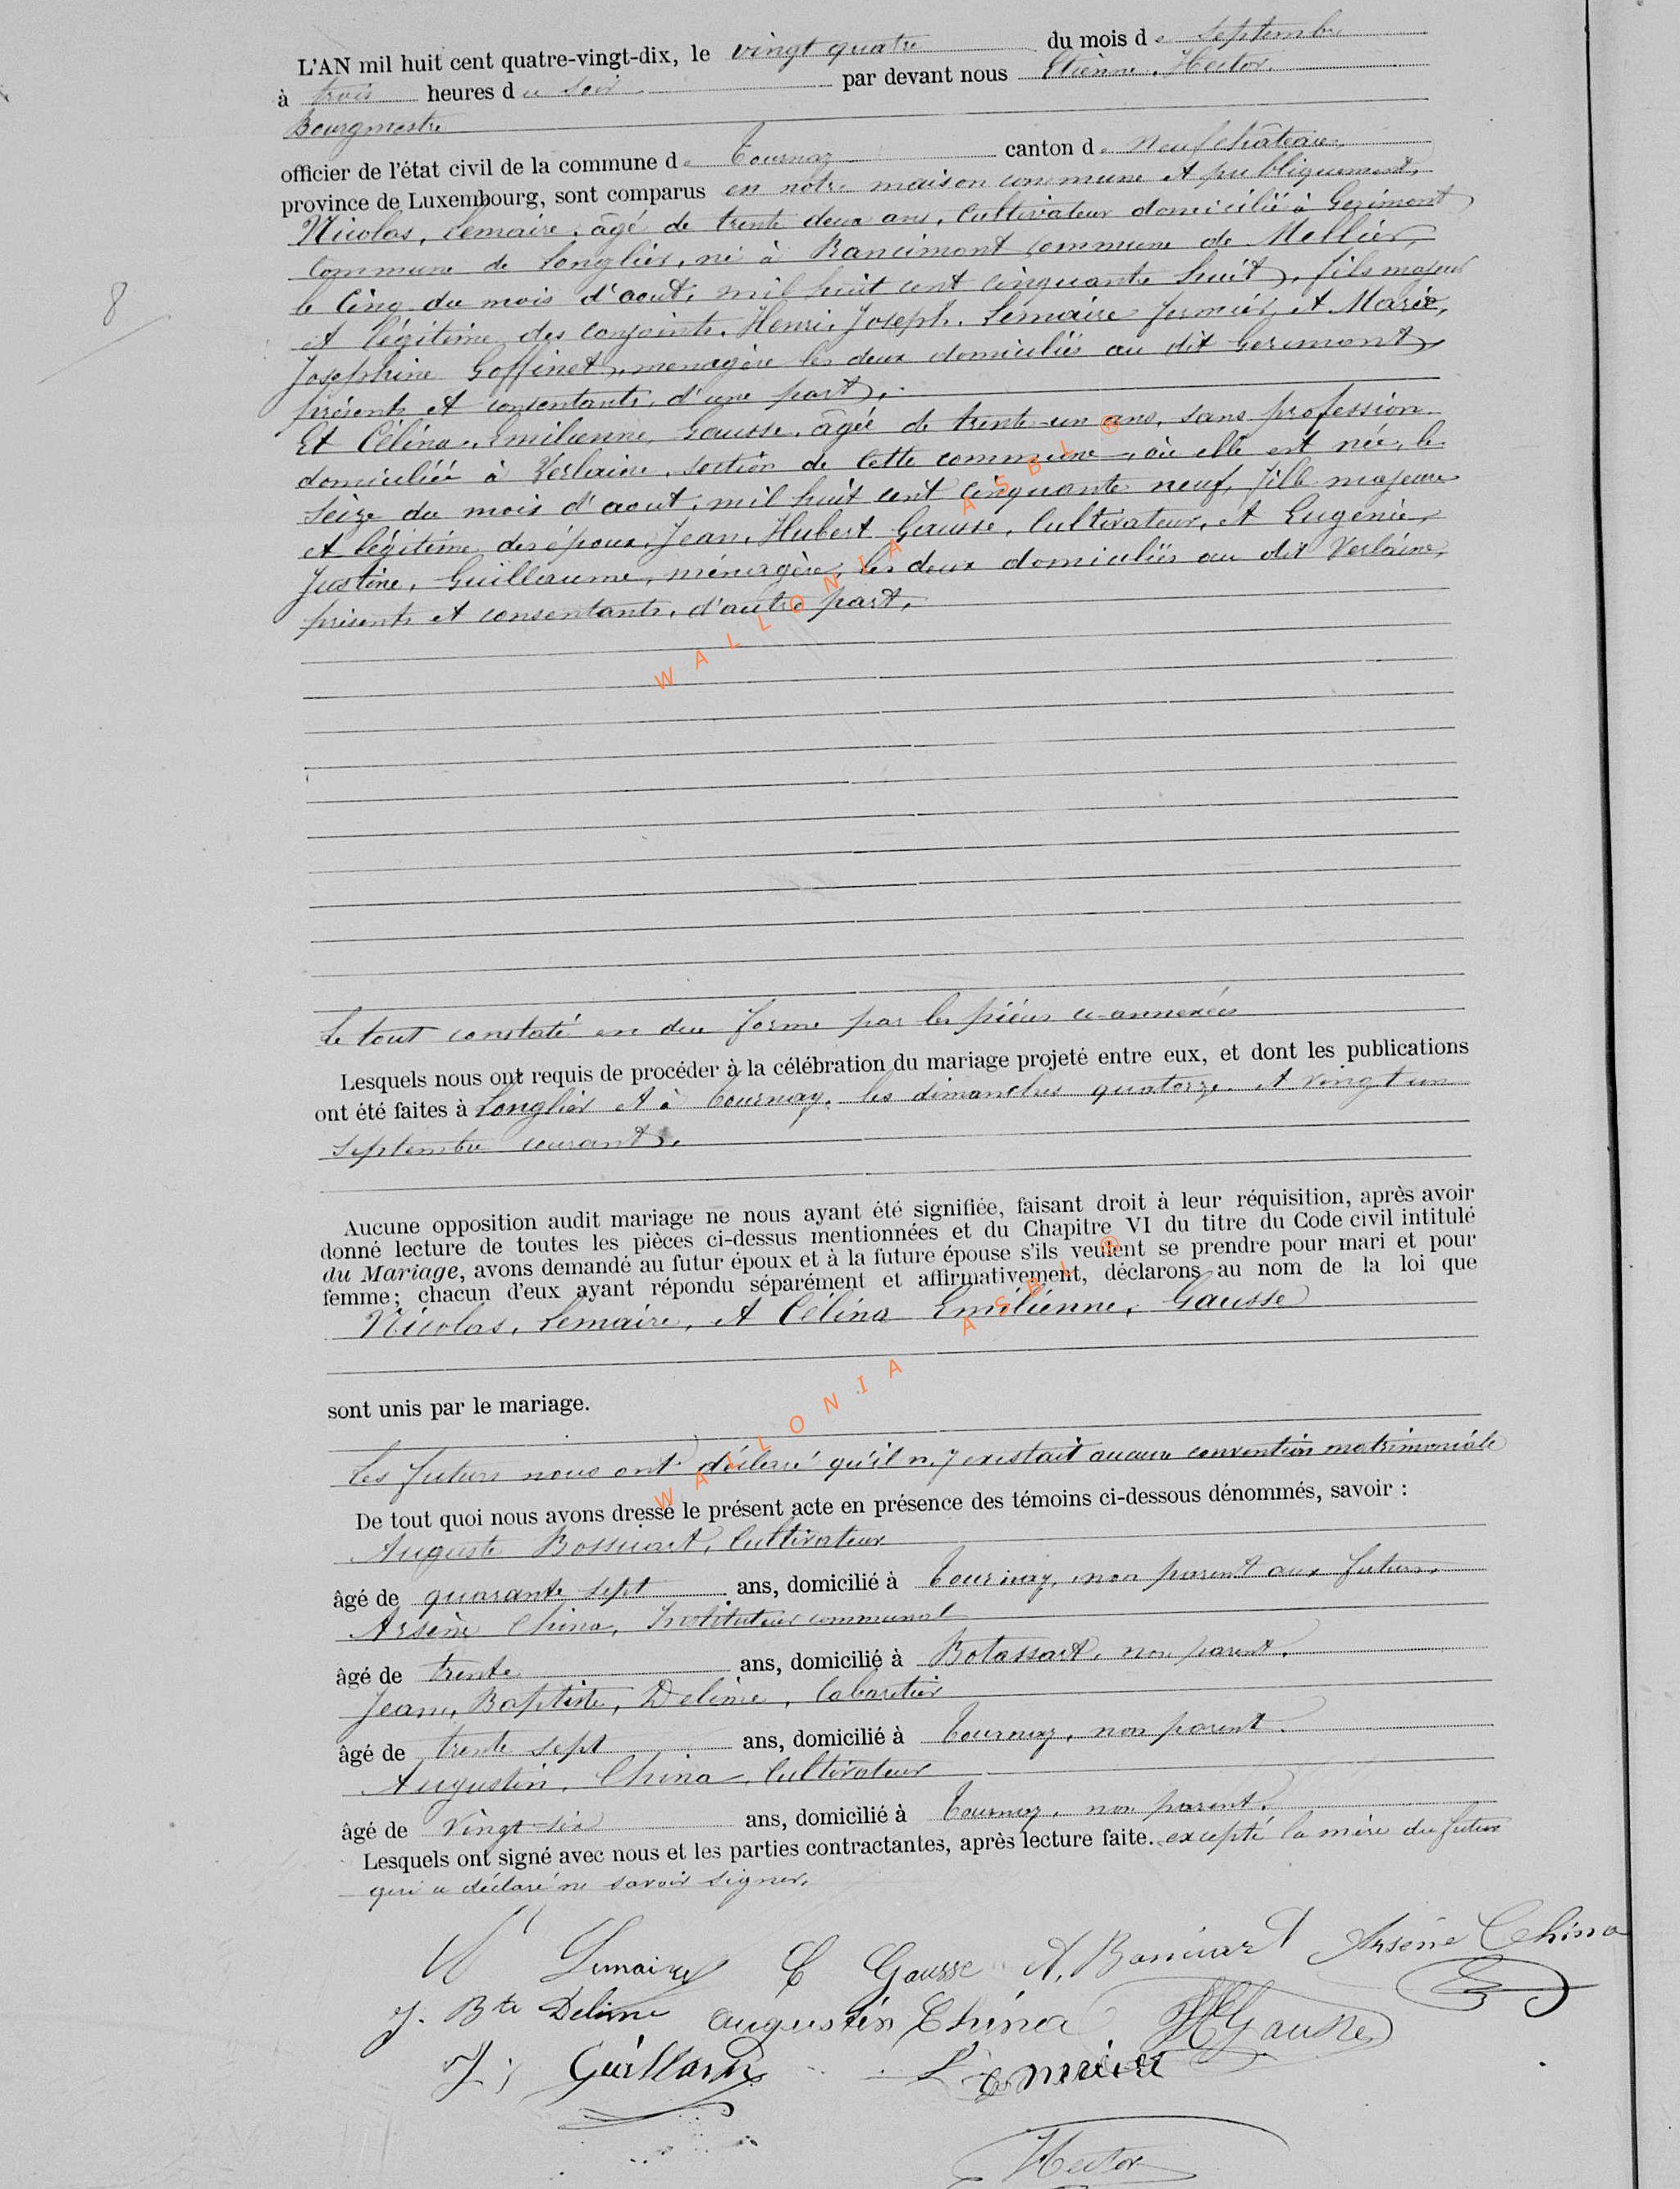 L'AN mil huit cent quatre-vingt-dix, le vingt quatre du mois de Septembre
à trois heures du Soir par devant nous Etienne, Hector,
Bourgmestre
officier de l'état civil de la commune de Tournay canton de Neufchâteau,
province de Luxembourg, sont comparus en notre maison commune et publiquement,
Nicolas, Lemaire, âgé de trente deux ans, Cultivateur domicilié à Gerimont
Commune de Longlier, né à Rancimont commune de Mellier,
le Cinq du mois d'aout, mil huit cent cinquante huit, fils majeur
et légitime des conjoints, Henri, Joseph, Lemaire fermier, et Marie,
Josephine Goffinet, menagère les deux domiciliés au dit Gerimont,
présents et consentants, d'une part,
Et Célina, Emilienne, Gausse, âgée de trente-un ans, sans profession
domiciliée à Verlaine, section de cette commune, où elle est née, le
seize du mois d'aout, mil huit cent cinquante neuf, fille majeure
et légitime des époux, Jean, Hubert Gausse, Cultivateur, et Eugénie,
Justine, Guillaume, ménagère, les deux domiciliés au dit Verlaine,
présents et consentants, d'autre part,
WALLONIA ASBL ®
8
Le tout constaté en due forme par les pièces ci-annexées
Lesquels nous ont requis de procéder à la célébration du mariage projeté entre eux, et dont les publications
ont été faites à Longlier et à Tournay, les dimanches quatorze et vingt un
septembre courant,
Aucune opposition audit mariage ne nous ayant été signifiée, faisant droit à leur réquisition, après avoir
donné lecture de toutes les pièces ci-dessus mentionnées et du Chapitre VI du titre du Code civil intitulé
du Mariage, avons demandé au futur époux et à la future épouse s'ils veulent se prendre pour mari et pour
femme; chacun d'eux ayant répondu séparément et affirmativement, déclarons au nom de la loi que
Nicolas, Lemaire, et Célina Emilienne, Gausse
sont unis par le mariage.
WALLONIA ASBL ®
Les futurs nous ont déclaré qu'il n'y existait aucune convention matrimoniale
De tout quoi nous avons dressé le présent acte en présence des témoins ci-dessous dénommés, savoir :
Auguste Bossicart, Cultivateur
âgé de quarante sept ans, domicilié à Tournay, non parent aux futurs,
Arsène China, Instituteur communal
âgé de trente ans, domicilié à Botassart, non parent,
Jean, Baptiste, Delime, Cabaretier
âgé de trente sept ans, domicilié à Tournay, non parent,
Augustin, China, Cultivateur
âgé de Vingt-six ans, domicilié à Tournay, non parent,
Lesquels ont signé avec nous et les parties contractantes, après lecture faite. excepté la mère du futur
qui a déclaré ne savoir signer,
N Lemaire C Gausse A. Arsène China
J. Bte Delime Augustin China Gausse
J. Lemaire
Hector